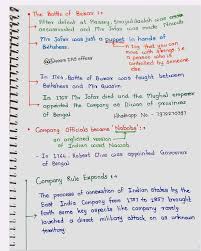 The Battle of Buxar :-
After defeat at Plassey, Sirajuddaulah was
assassinated and Mir Jafar was made Nawab
Mir Jafar was just a puppet in hands of
Britishers.
A toy that you can
move with strings i.e
a person who is
controlled by someone
else
In 1764, Battle of Buxar was fought between
Britishers and Mir Qasim.
In 1765 Mir Jafar died and the Mughal emperor
appointed the Company as Diwan of provinces
of Bengal
Company Officials became "Nabobs":
an anglicised version
of Indian word Nawab
In 1764 - Robert Clive was appointed Governor of
Bengal
Company Rule Expands :-
The process of annexation of Indian States by the
East India Company from 1757 to 1857 brought
forth some key aspects like company rarely
launched a direct military attack on an unknown
territory.